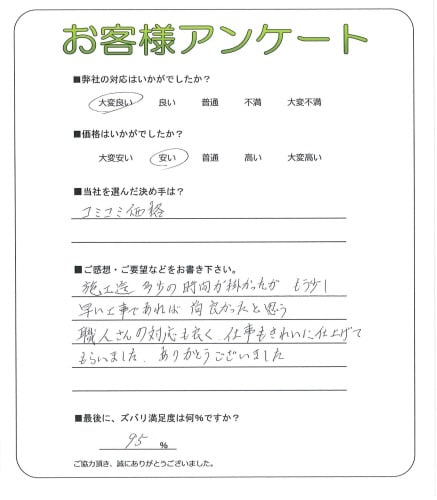 お客様アンケート
■弊社の対応はいかがでしたか?
大変良い 良い 普通 不満 大変不満
■価格はいかがでしたか?
大変安い 安い 普通 高い 大変高い
■当社を選んだ決め手は?
コミコミ価格
■ご感想・ご要望などをお書き下さい。
施工迄 多少の時間が掛かったが もう少し
早い工事であれば 尚良かったと思う
職人さんの対応も良く、仕事もきれいに仕上げて
もらいました。ありがとうございました
■最後に、ズバリ満足度は何%ですか?
95 %
ご協力頂き、誠にありがとうございました。